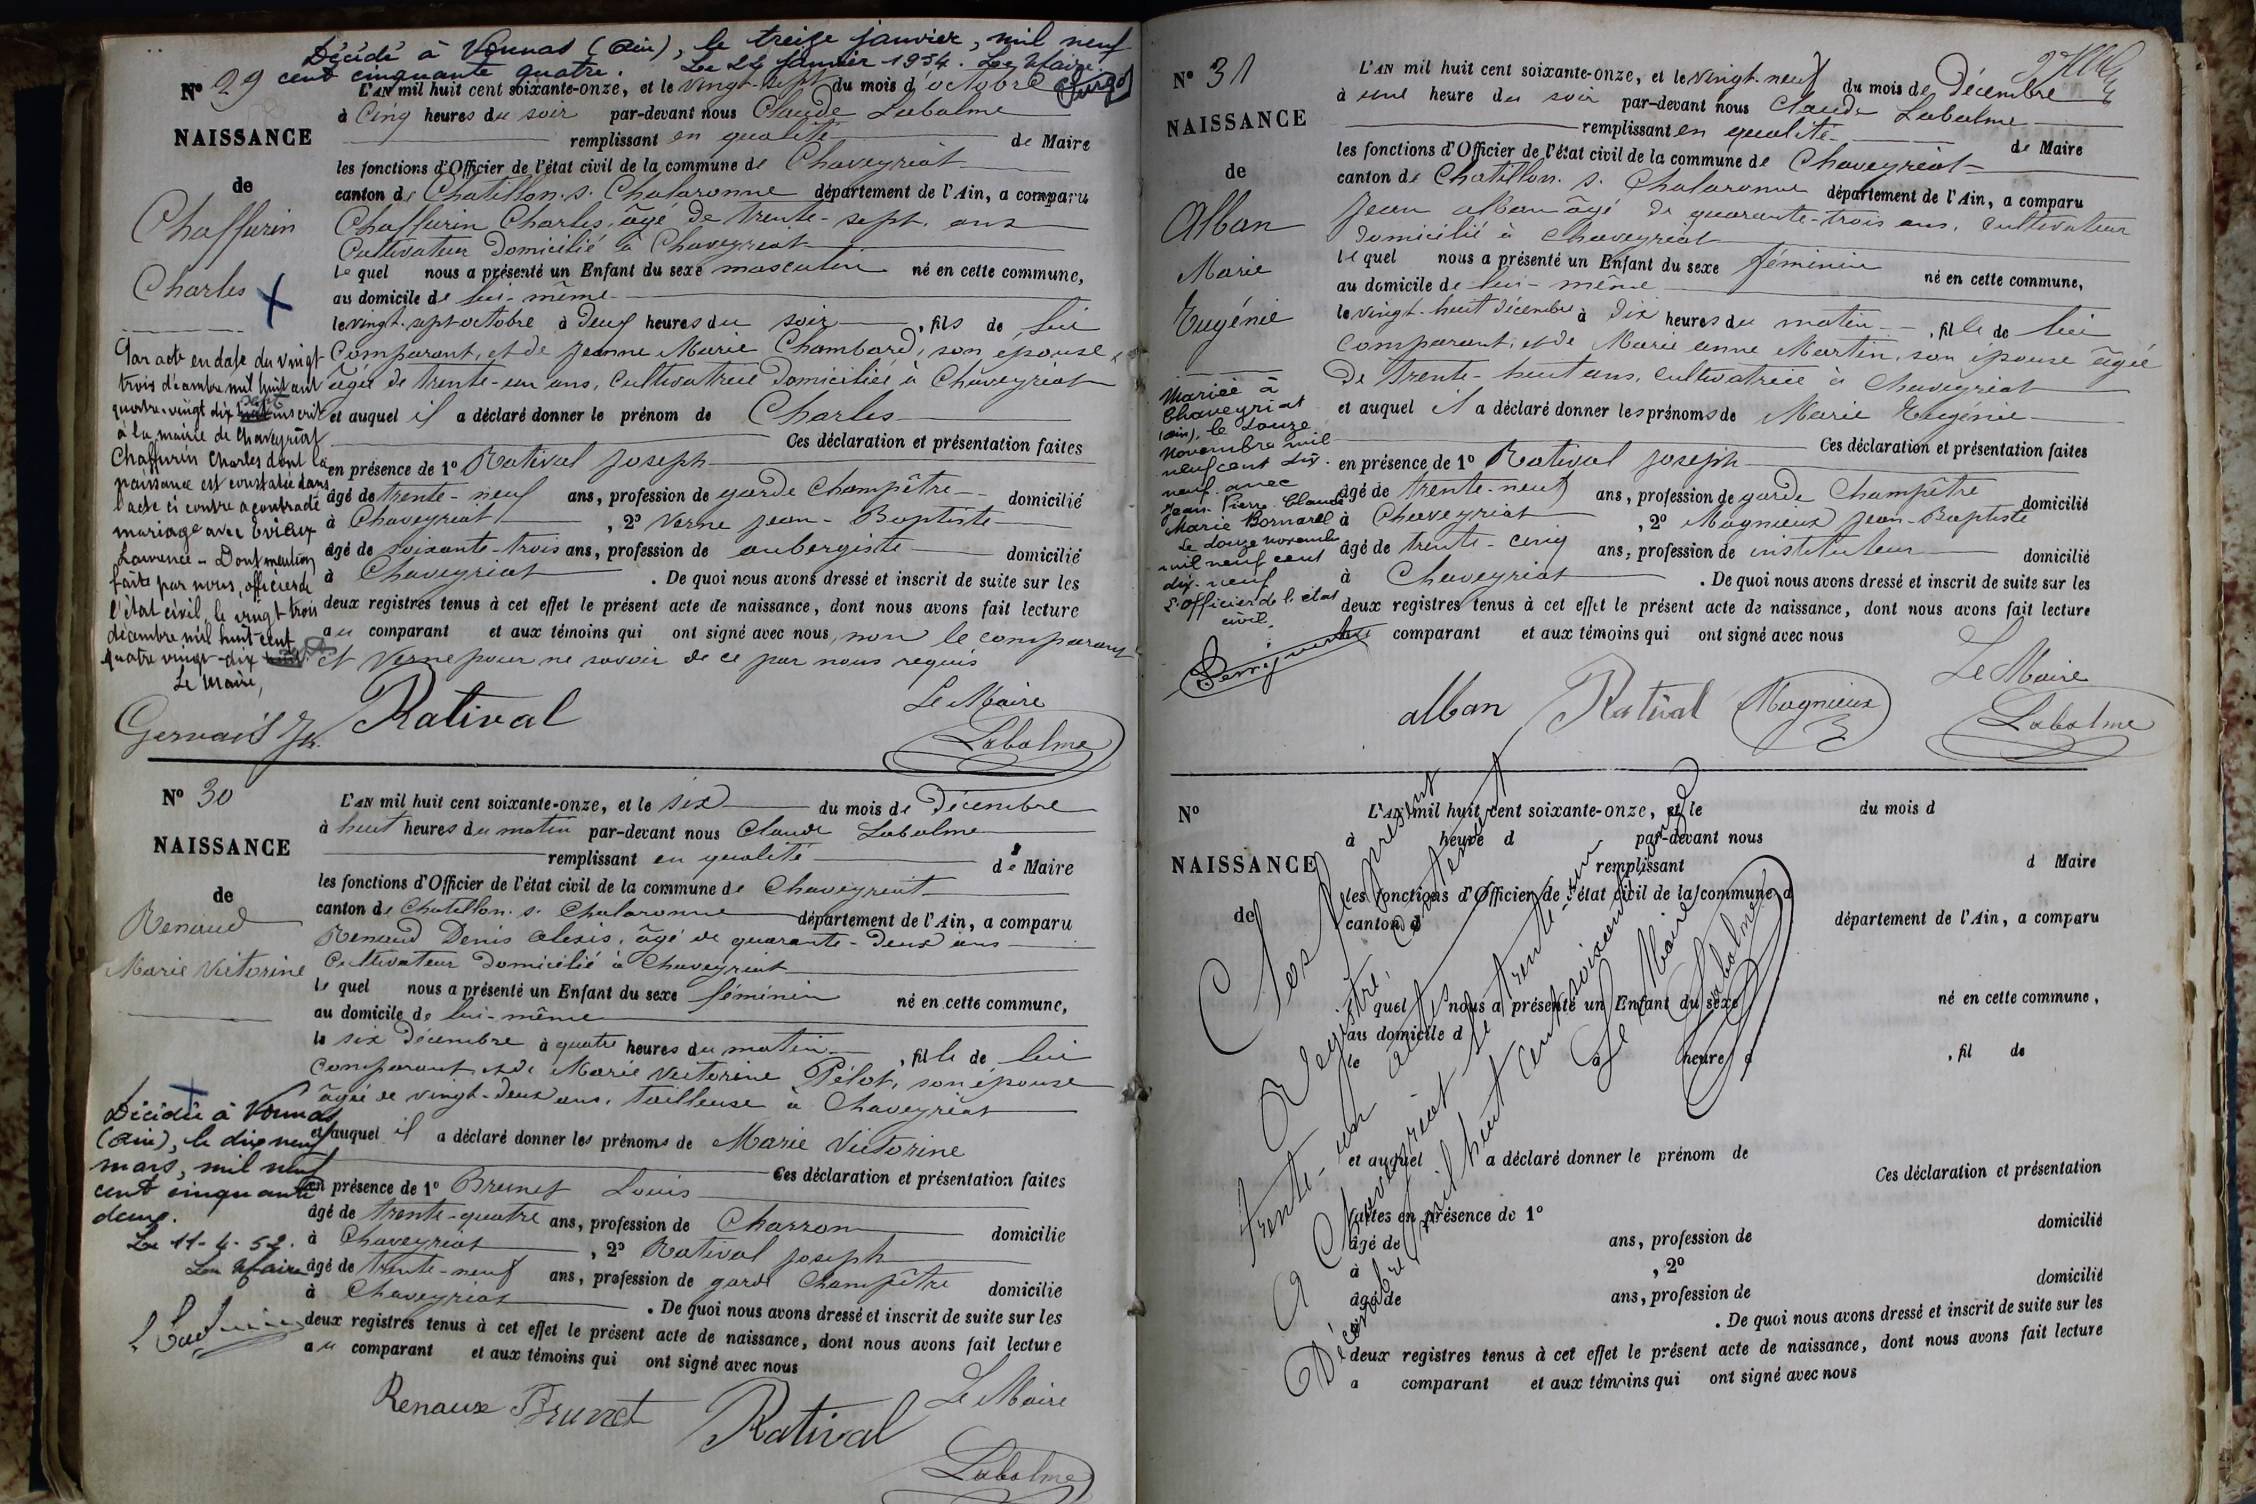 Décédé à Vonnas (Ain), le treize janvier, mil neuf
cent cinquante quatre. Le 24 janvier 1954. Le Maire.
N° 29
NAISSANCE
de
Chaffurin
Charles
L'AN mil huit cent soixante-onze, et le vingt-sept du mois d'octobre
à cinq heures du soir par-devant nous Claude Labalme
remplissant en qualité de Maire
les fonctions d'Officier de l'état civil de la commune de Chaveyriat
canton de Chatillon. s. Chalaronne département de l'Ain, a comparu
Chaffurin Charles, âgé de trente-sept ans
Cultivateur domicilié à Chaveyriat
lequel nous a présenté un Enfant du sexe masculin né en cette commune,
au domicile de lui-même
le vingt-sept octobre à deux heures du soir, fils de lui
Comparant, et de Jeanne Marie Chambard, son épouse
âgée de trente-un ans, cultivatrice domiciliée à Chaveyriat
et auquel il a déclaré donner le prénom de Charles
Ces déclaration et présentation faites
en présence de 1° Ratival Joseph
âgé de trente-neuf ans, profession de garde champêtre domicilié
à Chaveyriat, 2° Verne Jean-Baptiste
âgé de soixante-trois ans, profession de aubergiste domicilié
à Chaveyriat. De quoi nous avons dressé et inscrit de suite sur les
deux registres tenus à cet effet le présent acte de naissance, dont nous avons fait lecture
au comparant et aux témoins qui ont signé avec nous, non le comparant
et Verne pour ne savoir de ce par nous requis
Ratival
Le Maire
Labalme
Par acte en date du vingt
trois décembre mil huit cent
quatre-vingt dix sept inscrit
à la mairie de Chaveyriat
Chaffurin Charles dont la
naissance est constatée dans
l'acte ci contre a contracté
mariage avec Evieux
Laurence - Dont mention
faite par nous, officier de
l'état civil, le vingt trois
décembre mil huit-cent
quatre vingt-dix
Le Maire,
Gervais
N° 30
NAISSANCE
de
Renaud
Marie Victorine
L'AN mil huit cent soixante-onze, et le six du mois de Décembre
à huit heures du matin par-devant nous Claude Labalme
remplissant en qualité de Maire
les fonctions d'Officier de l'état civil de la commune de Chaveyriat
canton de Chatillon. s. Chalaronne département de l'Ain, a comparu
Renaud Denis Alexis, âgé de quarante-deux ans
Cultivateur domicilié à Chaveyriat
lequel nous a présenté un Enfant du sexe féminin né en cette commune,
au domicile de lui-même
le six Décembre à quatre heures du matin, fille de lui
comparant, et de Marie Victorine Pélot, son épouse
âgée de vingt-deux ans, tailleuse à Chaveyriat
et auquel il a déclaré donner les prénoms de Marie Victorine
Ces déclaration et présentation faites
en présence de 1° Brunet Louis
âgé de trente-quatre ans, profession de Charron domicilié
à Chaveyriat, 2° Ratival Joseph
âgé de trente-neuf ans, profession de garde champêtre domicilié
à Chaveyriat. De quoi nous avons dressé et inscrit de suite sur les
deux registres tenus à cet effet le présent acte de naissance, dont nous avons fait lecture
au comparant et aux témoins qui ont signé avec nous
Renaux Brunet Ratival
Le Maire
Labalme
Décédée à Vonnas
(Ain), le dix neuf
mars, mil neuf
cent cinquante
deux.
Le 11-4-52.
Le Maire
N° 31
NAISSANCE
de
Alban
Marie
Eugénie
L'AN mil huit cent soixante-onze, et le vingt-neuf du mois de Décembre
à une heure du soir par-devant nous Claude Labalme
remplissant en qualité de Maire
les fonctions d'Officier de l'état civil de la commune de Chaveyriat
canton de Chatillon. s. Chalaronne département de l'Ain, a comparu
Jean Alban âgé de quarante-trois ans, Cultivateur
domicilié à Chaveyriat
lequel nous a présenté un Enfant du sexe féminin né en cette commune,
au domicile de lui-même
le vingt-huit décembre à dix heures du matin, fille de lui
comparant, et de Marie Anne Martin, son épouse âgée
de trente-huit ans, cultivatrice à Chaveyriat
et auquel il a déclaré donner les prénoms de Marie Eugénie
Ces déclaration et présentation faites
en présence de 1° Ratival Joseph
âgé de trente-neuf ans, profession de garde Champêtre domicilié
à Chaveyriat, 2° Magnieux Jean-Baptiste
âgé de trente-cinq ans, profession de instituteur domicilié
à Chaveyriat. De quoi nous avons dressé et inscrit de suite sur les
deux registres tenus à cet effet le présent acte de naissance, dont nous avons fait lecture
comparant et aux témoins qui ont signé avec nous
Alban Ratival Magnieux
Le Maire
Labalme
Mariée à
Chaveyriat
(Ain), le douze
Novembre mil
neuf cent dix-
neuf avec
Jean-Pierre Claude
Marie Bornarel
Le douze novembre
mil neuf cent
dix-neuf
L'officier de l'état
civil.
N°
NAISSANCE
de
L'AN mil huit cent soixante-onze, et le du mois d
à heure d par-devant nous
remplissant d Maire
les fonctions d'Officier de l'état civil de la commune d
canton d département de l'Ain, a comparu
quel nous a présenté un Enfant du sexe né en cette commune,
au domicile d
le à heure d, fil de
et auquel a déclaré donner le prénom de
Ces déclaration et présentation
faites en présence de 1°
âgé de ans, profession de domicilié
à, 2°
âgé de ans, profession de domicilié
à. De quoi nous avons dressé et inscrit de suite sur les
deux registres tenus à cet effet le présent acte de naissance, dont nous avons fait lecture
a comparant et aux témoins qui ont signé avec nous
Clos le présent
Registre contenant
trente-un actes
A Chaveyriat le trente-un
Décembre mil huit cent soixante onze
Le Maire
Labalme